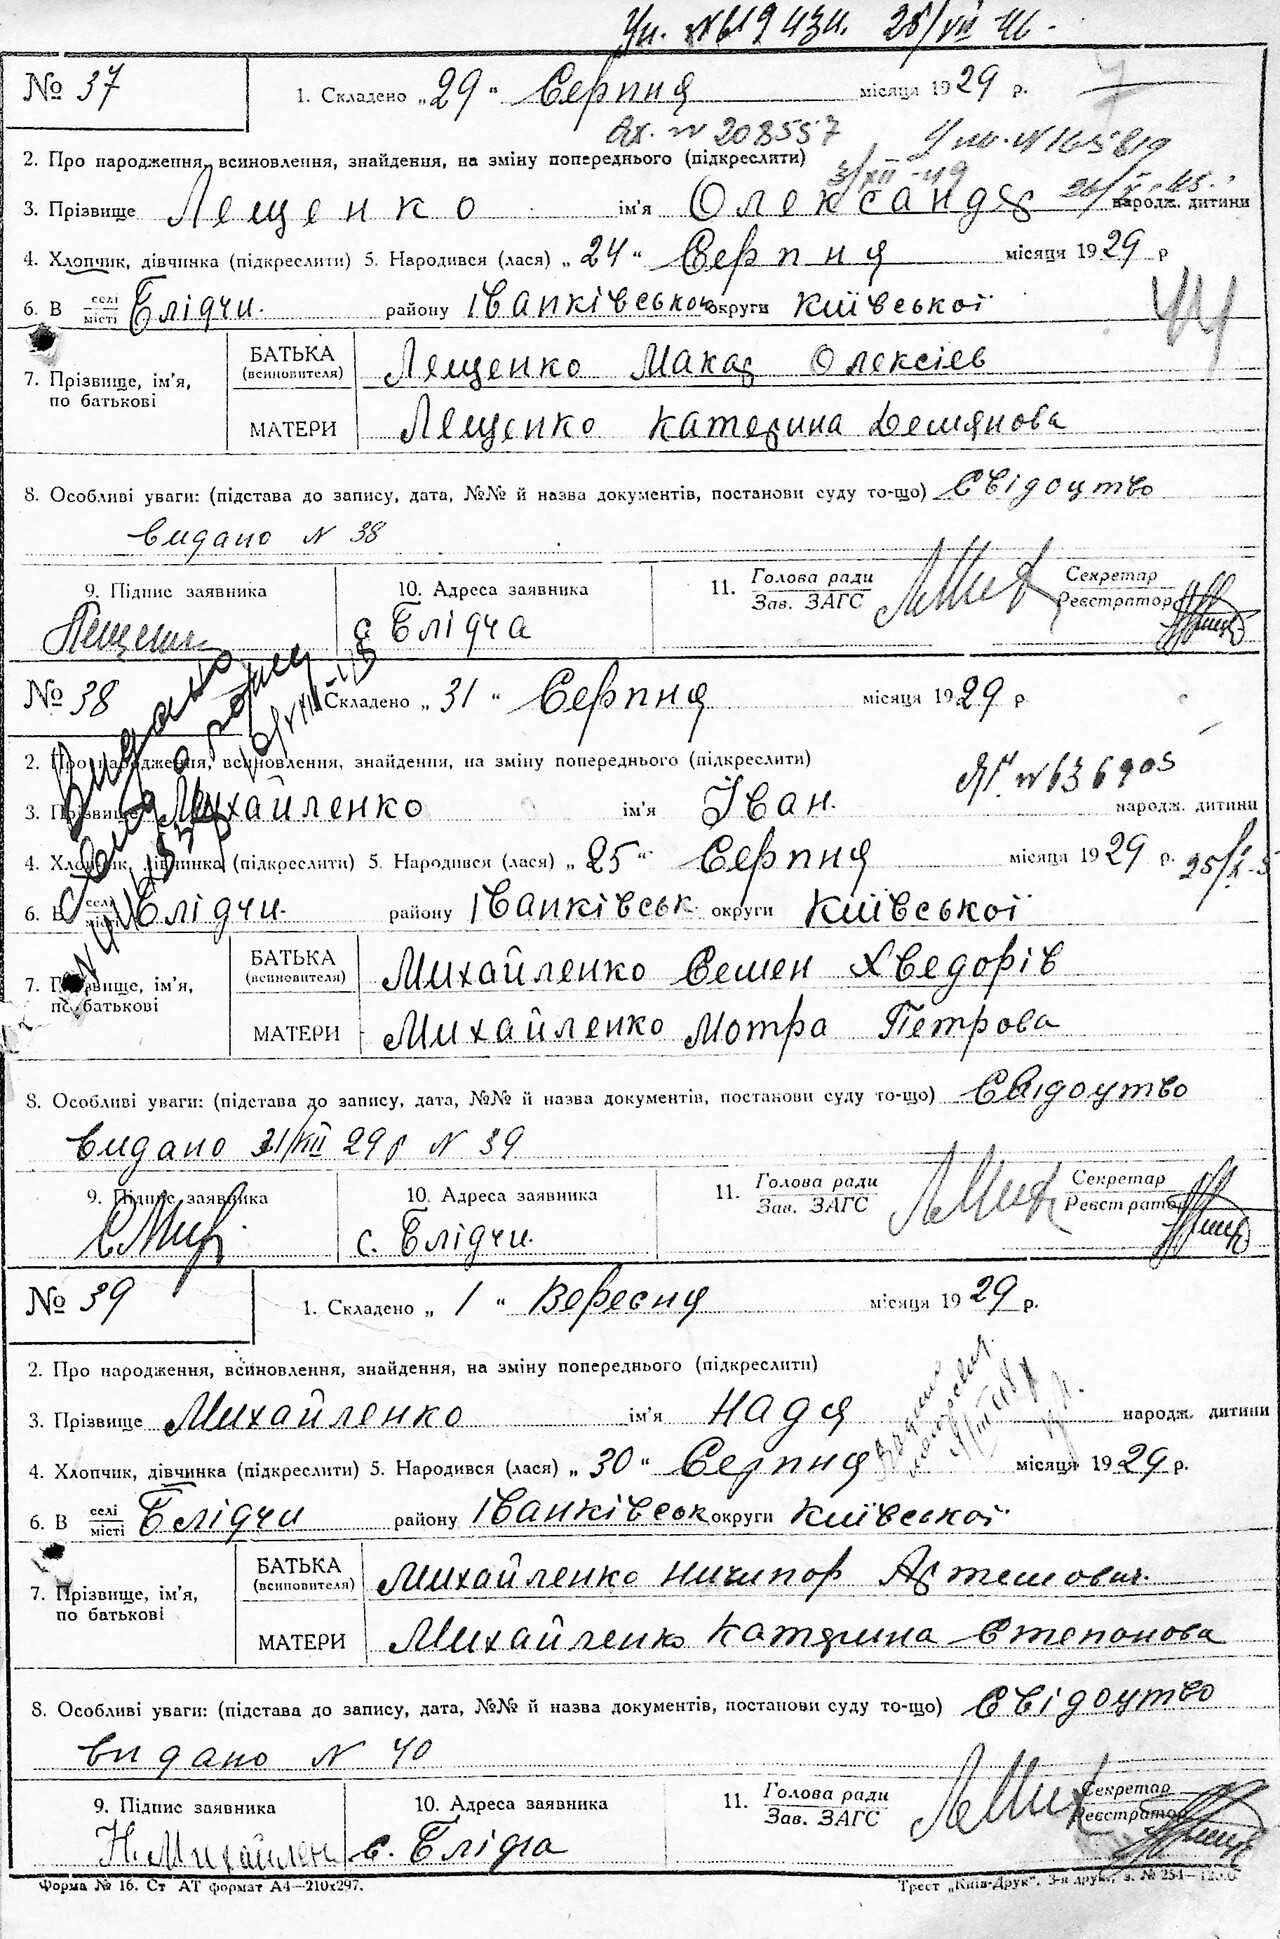 № 37
1. Складено „29“ Серпня місяця 1929 р.
Ах. № 208557
2. Про народження, всиновлення, знайдення, на зміну попереднього (підкреслити)
3/XII-49
3. Прізвище Лещенко ім'я Олександр народж. дитини
4. Хлопчик, дівчинка (підкреслити) 5. Народився (лася) „24“ Серпня місяця 1929 р
6. В селі місті Блідчи. району Іванківської округи Київської
7. Прізвище, ім'я, по батькові
БАТЬКА (всиновителя) Лещенко Макар Олексіев
МАТЕРИ Лещенко Катерина Демянова
8. Особливі уваги: (підстава до запису, дата, №№ й назва документів, постанови суду то-що) Свідоцтво
видано N 38
9. Підпис заявника 10. Адреса заявника 11. Голова ради Зав. ЗАГС Секретар Реєстратор
с Блідча
№ 38
Складено „31“ Серпня місяця 1929 р
2. Про народження, всиновлення, знайдення, на зміну попереднього (підкреслити)
3. Прізвище Михайленко ім'я Іван. народж. дитини
4. Хлопчик, дівчинка (підкреслити) 5. Народився (лася) „25“ Серпня місяця 1929 р.
6. В селі місті Блідчи. району Іванківськ. округи Київської
7. Прізвище, ім'я, по батькові
БАТЬКА (всиновителя) Михайленко Семен Хведорів
МАТЕРИ Михайленко Мотра Петрова
8. Особливі уваги: (підстава до запису, дата, №№ й назва документів, постанови суду то-що) Свідоцтво
видано 31/VIII 29 р N 39
9. Підпис заявника 10. Адреса заявника 11. Голова ради Зав. ЗАГС Секретар Реєстратор
с. Блідчи.
№ 39
1. Складено „1“ Вересня місяця 1929 р.
2. Про народження, всиновлення, знайдення, на зміну попереднього (підкреслити)
3. Прізвище Михайленко ім'я Надя народж. дитини
4. Хлопчик, дівчинка (підкреслити) 5. Народився (лася) „30“ Серпня місяця 1929 р.
6. В селі місті Блідчи району Іванківськ округи Київської
7. Прізвище, ім'я, по батькові
БАТЬКА (всиновителя) Михайленко Ничипор Артемович
МАТЕРИ Михайленко Катерина Степонова
8. Особливі уваги: (підстава до запису, дата, №№ й назва документів, постанови суду то-що) Свідоцтво
видано N 40
9. Підпис заявника 10. Адреса заявника 11. Голова ради Зав. ЗАГС Секретар Реєстратор
Н. Михайлен с. Блідча
Форма № 16. Ст АТ формат А4—210х297. Трест „Київ-Друк“.